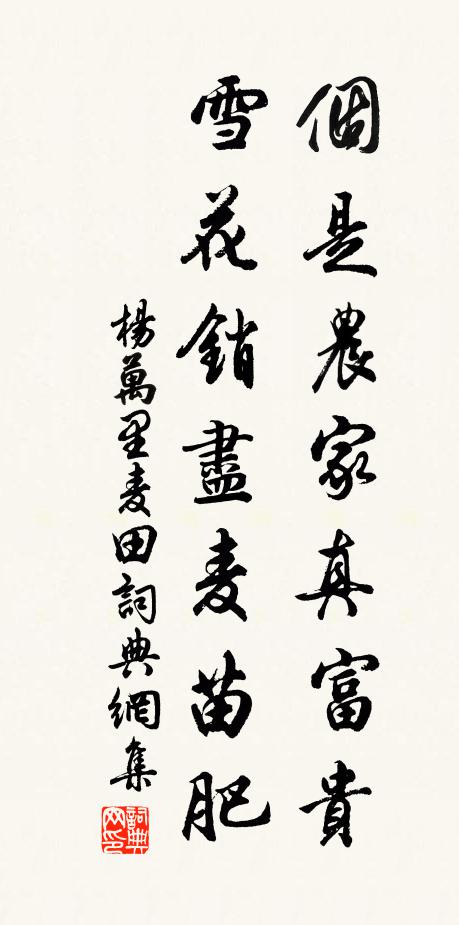 個是農家真富貴
雪花銷盡麦苗肥
楊萬里麦田詞典網集
詞典網印